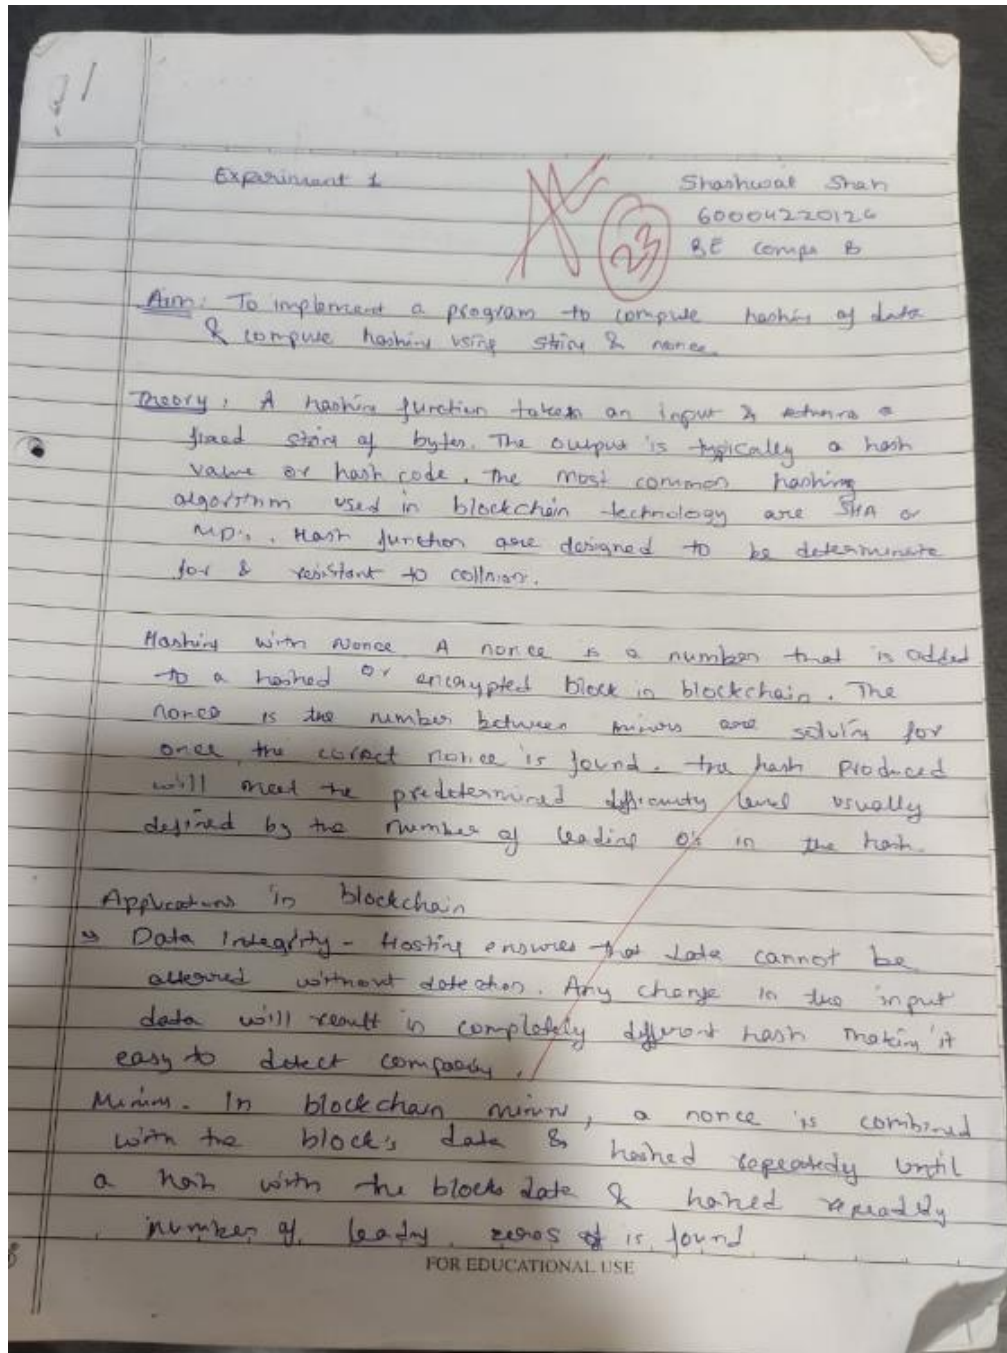 Experiment 1
Shashwat Shah
23
60004220126
BE Comps B
Aim: To implement a program to compute hashing of data
& compute hashing using string & nonce.
Theory: A hashing function takes an input & returns a
fixed string of bytes. The output is typically a hash
value or hash code. The most common hashing
algorithm used in blockchain technology are SHA or
Hash function are designed to be determinate
for & resistant to collision.
Hashing with Nonce A nonce is a number that is added
to a hashed or encrypted block in blockchain. The
nonce is the number between miners are solving for
once, the correct nonce is found. the hash produced
will meet the predetermined difficulty level usually
defined by the number of leading 0's in the hash.
Applications in blockchain
Data Integrity - Hosting ensures that data cannot be
altered without detection. Any change in the input
data will result in completely different hash making it
easy to detect
Mining. In blockchain mining, a nonce is combined
with the block's data & hashed repeatedly until
a hash with the blocks data & hashed repeatedly
number of leading zeros is found
FOR EDUCATIONAL USE